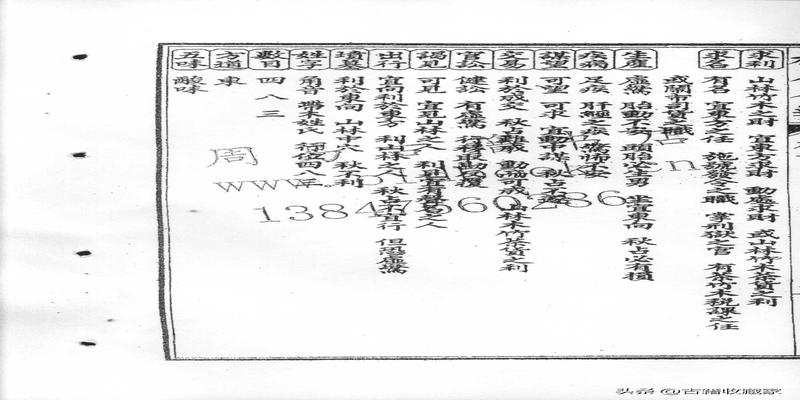 求利 山林竹木之財 宜東方求財 動處求財 或山林竹木茶貨之利
求名 有名 宜東方之任 施號發令之職 掌刑獄之官 有茶竹木稅課之任
或閘市司貨之職
生產 虛驚 胎動不安 頭胎必生男 坐宜東向 秋占必有損
疾病 足疾 肝經之疾 驚怖不安
謀望 可望 可求 宜動中謀 秋占不遂
交易 利於成交 秋占難成 動而可成 山林木竹茶貨之利
官訟 健訟 有虛驚 行移取動反覆
謁見 可見 宜見山林之人 利見宜有聲名之人
出行 宜向利於東方 利山林之人 秋占不宜行 但恐虛驚
墳墓 利於東向 山林中穴 秋不利
姓字 角音 帶木姓氏 行位四八三
數目 四 八 三
方道 東
五味 酸味
周
13847660286
头条 @古籍收藏家